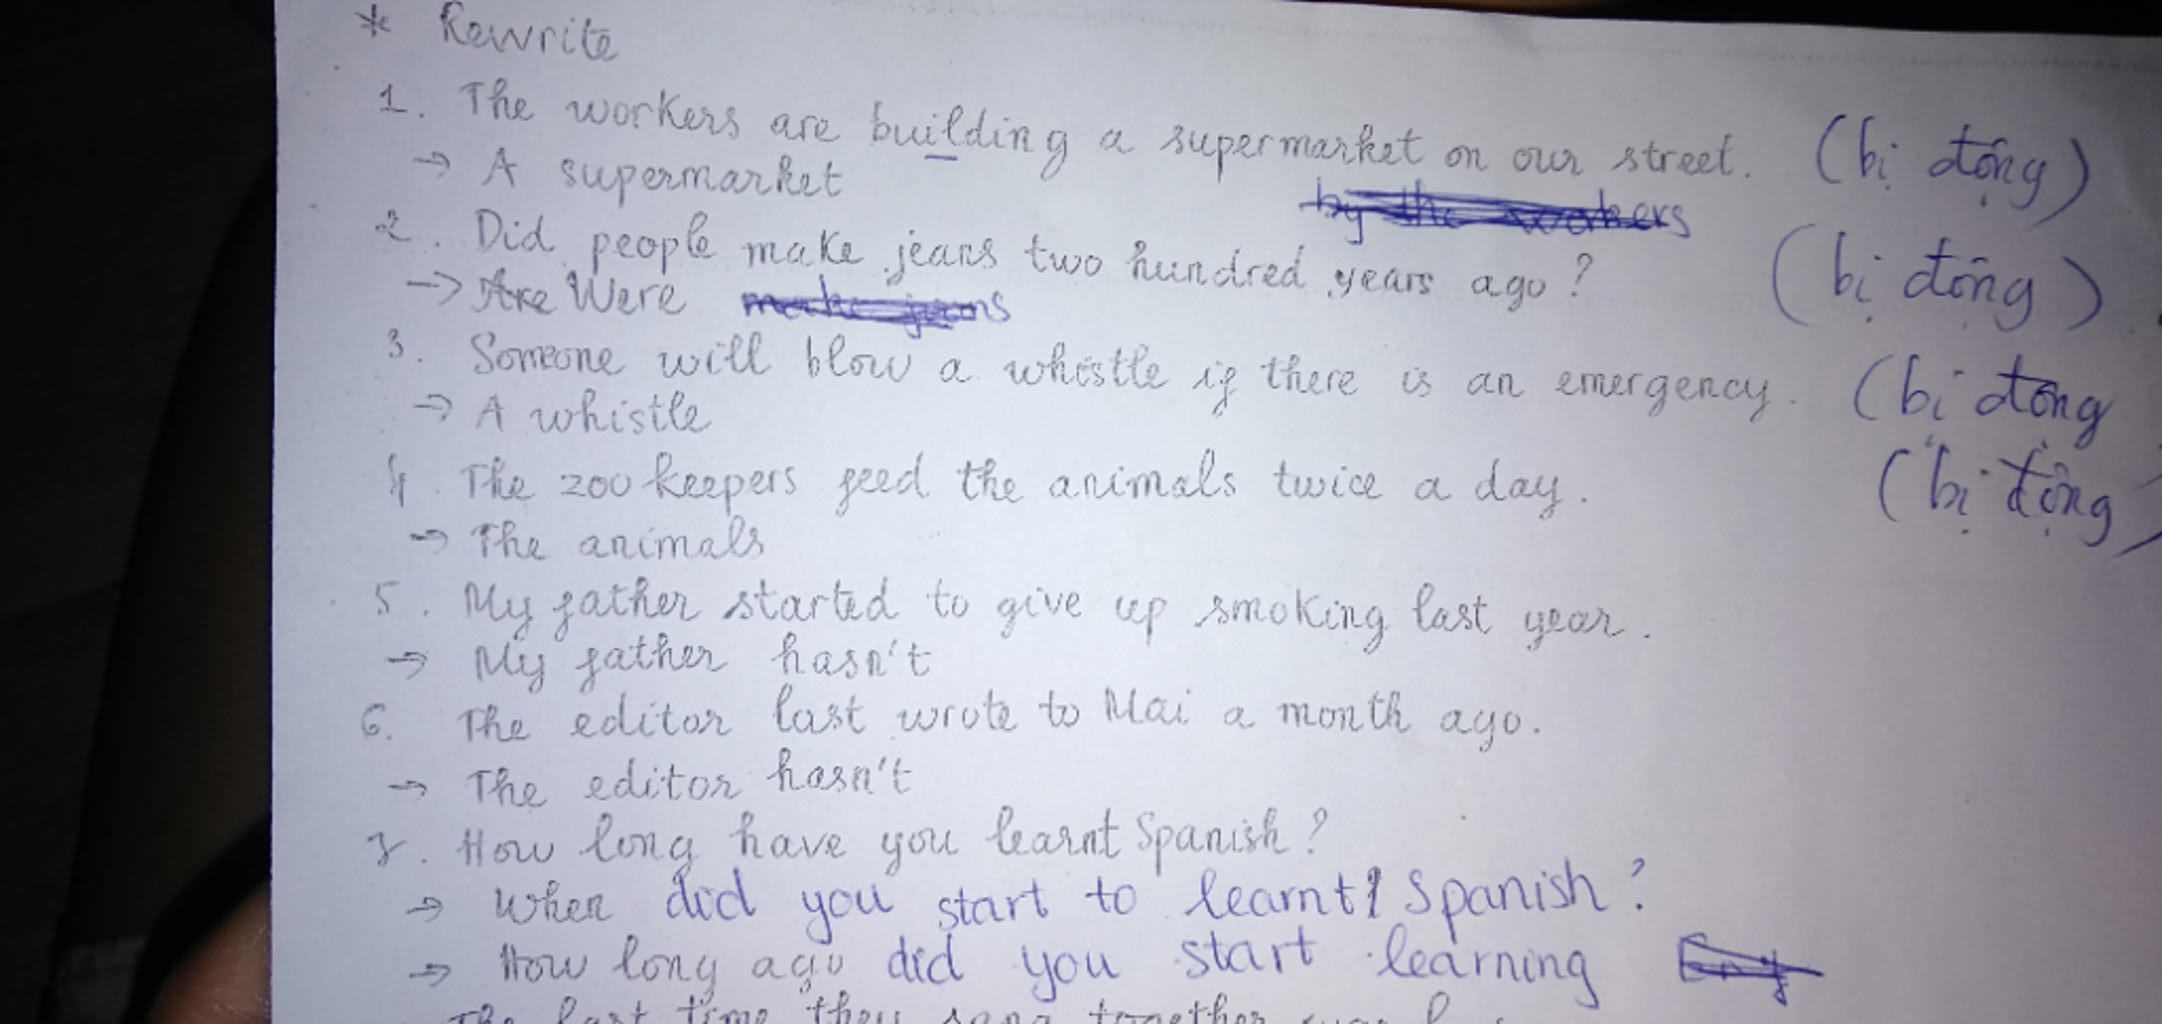 * Rewrite
1. The workers are building a supermarket on our street. (bị động)
→ A supermarket by the workers
2. Did people make jeans two hundred years ago? (bị động)
→ Are Were make jeans
3. Someone will blow a whistle if there is an emergency. (bị động
→ A whistle
4. The zoo keepers feed the animals twice a day. (bị động)
→ The animals
5. My father started to give up smoking last year.
→ My father hasn't
6. The editor last wrote to Mai a month ago.
→ The editor hasn't
7. How long have you learnt Spanish?
→ When did you start to learnt Spanish?
→ How long ago did you start learning
The last time they sang together